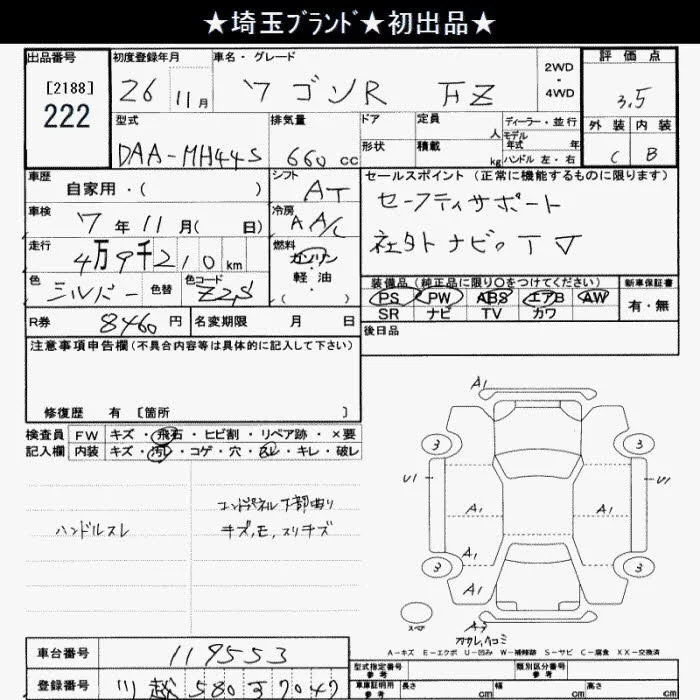 ★埼玉ﾌﾞﾗﾝﾄﾞ★初出品★
出品番号 初度登録年月 車名・グレード 2WD・4WD 評価点
[2188]
222
26 11月 ワゴンR FZ 3.5
型式 排気量 ドア 定員 人 ディーラー・並行 外装 内装
モデル年式 年
DAA-MH44S 660 cc 形状 積載 kg ハンドル 左・右 C B
車歴 自家用・( ) シフト AT セールスポイント (正常に機能するものに限ります)
セーフティサポート
車検 7年11月( 日) 冷房 AA/C
社外ナビ、TV
走行 4万9千210km 燃料 ガソリン 軽油 ( )
色 シルバー 色替 色コード Z2S
装備品 (純正品に限り○をつけてください) 新車保証書
PS PW ABS エアB AW 有・無
SR ナビ TV カワ
R券 8460円 名変期限 月 日 後日品
注意事項申告欄 (不具合内容等は具体的に記入して下さい)
修復歴 有 [箇所 ]
検査員 FW キズ・飛石・ヒビ割・リペア跡・×要
記入欄 内装 キズ・汚れ・コゲ・穴・・キレ・破レ
下部曲り
ハンドルスレ キズ,モ,スリキズ
A1
3 3
U1 U1
A1 A1 A1
A1
3 3
A1
スペア
A-キズ E-エクボ U-凹み W-補修跡 S-サビ C-腐食 XX-交換済
車台番号 119553
型式指定番号 参考 類別区分番号 参考
登録番号 川越 580 す 7047
車庫証明用 参考 長さ cm 幅 cm 高さ cm